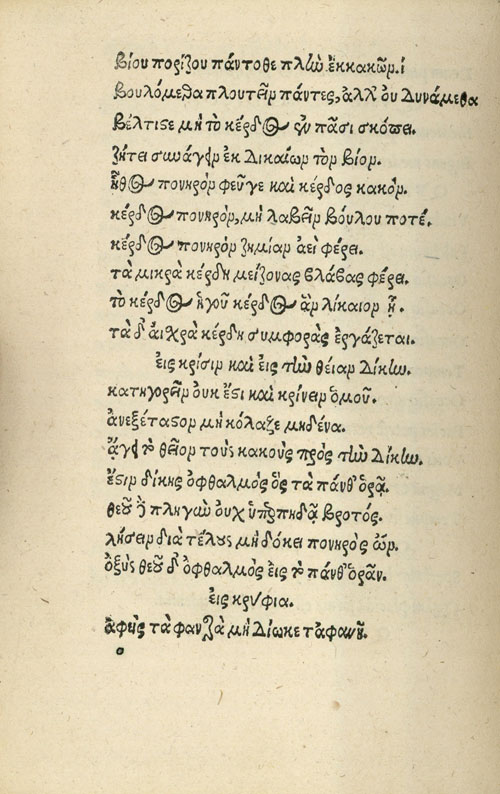 βίου πορίζου πάντοθε πλὴν ἐκ κακῶν.
βουλόμεθα πλουτεῖν πάντες, ἀλλ' οὐ δυνάμεθα
βέλτισε μὴ τὸ κέρδος ἐν πᾶσι σκόπει.
ζήτει συνάγειν ἐκ δικαίων τὸν βίον.
ἦθος πονηρὸν φεῦγε καὶ κέρδος κακόν.
κέρδος πονηρὸν, μὴ λαβεῖν βούλου ποτέ.
κέρδος πονηρὸν ζημίαν ἀεὶ φέρει.
τὰ μικρὰ κέρδη μείζονας βλάβας φέρει.
τὸ κέρδος ἡγοῦ κέρδος ἂν δίκαιον ᾖ.
τὰ δ' αἰχρὰ κέρδη συμφορὰς ἐργάζεται.
εἰς κρίσιν καὶ εἰς τὴν θείαν δίκην.
κατηγορεῖν οὐκ ἔστι καὶ κρίνειν ὁμοῦ.
ἀνεξέταστον μὴ κόλαζε μηδένα.
ἄγει τὸ θεῖον τοὺς κακοὺς πρὸς τὴν δίκην.
ἔστιν δίκης ὀφθαλμὸς ὃς τὰ πάνθ' ὁρᾷ.
θεοῦ πληγὴν οὐχ ὑπερπηδᾷ βροτός.
λήσειν διὰ τέλους μὴ δόκει πονηρὸς ὤν.
ὀξὺς θεοῦ δ' ὀφθαλμὸς εἰς τὸ πάνθ' ὁρᾶν.
εἰς κρύφια.
ἀφεὶς τὰ φανερὰ μὴ δίωκε τἀφανῆ.